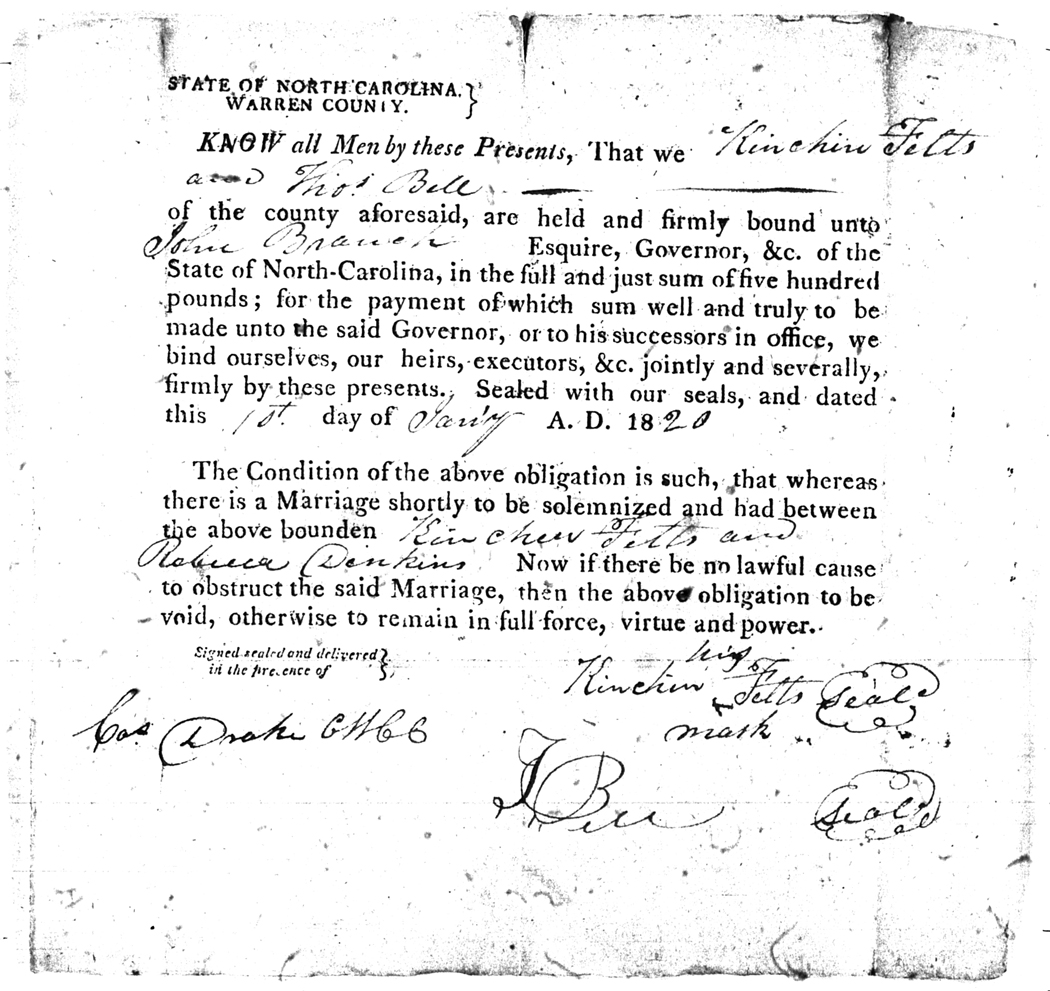 STATE OF NORTH CAROLINA. }
WARREN COUNTY.
KNOW all Men by these Presents, That we Kinchin Felts
and Thos Bell
of the county aforesaid, are held and firmly bound unto
John Branch Esquire, Governor, &c. of the
State of North-Carolina, in the full and just sum of five hundred
pounds; for the payment of which sum well and truly to be
made unto the said Governor, or to his successors in office, we
bind ourselves, our heirs, executors, &c. jointly and severally,
firmly by these presents. Sealed with our seals, and dated
this 1st. day of Jan'y A. D. 1820
The Condition of the above obligation is such, that whereas
there is a Marriage shortly to be solemnized and had between
the above bounden Kinchin Felts and
Rebecca Jenkins Now if there be no lawful cause
to obstruct the said Marriage, then the above obligation to be
void, otherwise to remain in full force, virtue and power.
Signed sealed and delivered }
in the presence of
his
Kinchin Felts Seal
mark
Cas Drake CWCC
T Bell Seal